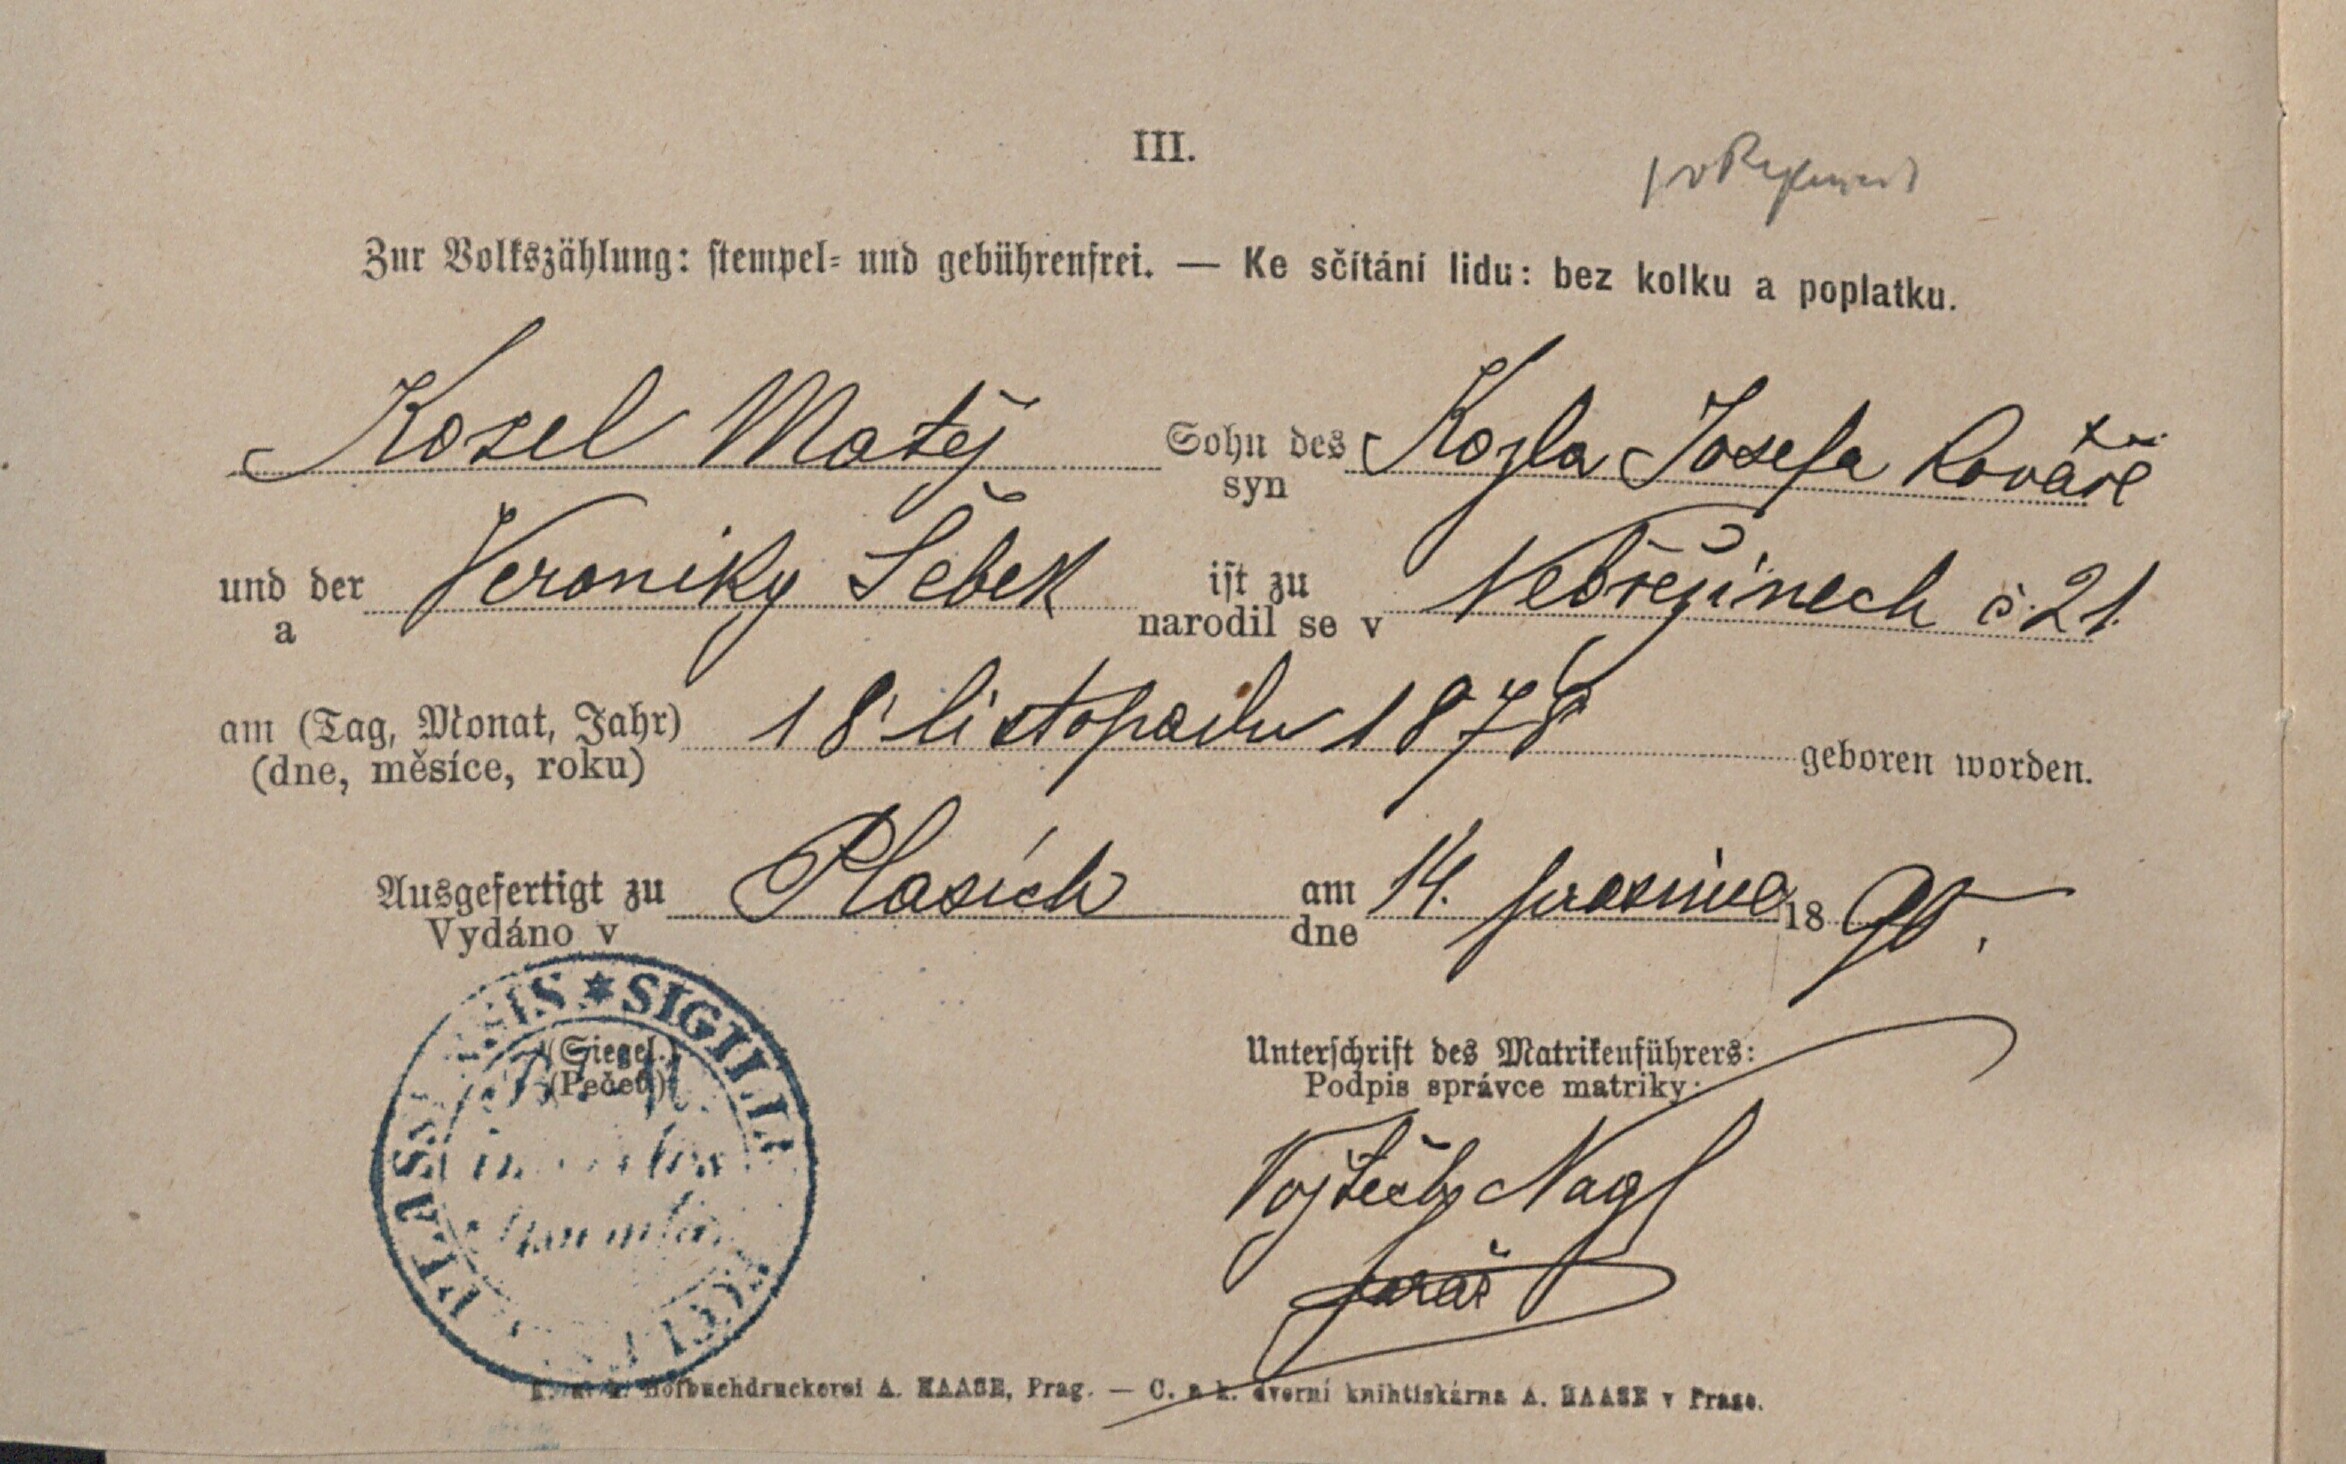 III.
Zur Volkszählung: stempel- und gebührenfrei. — Ke sčítání lidu: bez kolku a poplatku.
Kozel Matěj Sohn des Kozla Josefa kováře
syn
und der Veroniky Šebek ist zu Nebřežinech č. 21.
a narodil se v
am (Tag, Monat, Jahr) 18 listopadu 1878 geboren worden.
(dne, měsíce, roku)
Ausgefertigt zu Plasích am 14. prosince 1890.
Vydáno v dne
SIGILL PLASS
(Siegel.)
(Pečeť)
Unterschrift des Matrikenführers:
Podpis správce matriky:
Vojtěch Nagl
farář
K. u. k. Hofbuchdruckerei A. HAASE, Prag. — C. a k. dvorní knihtiskárna A. HAASE v Praze.